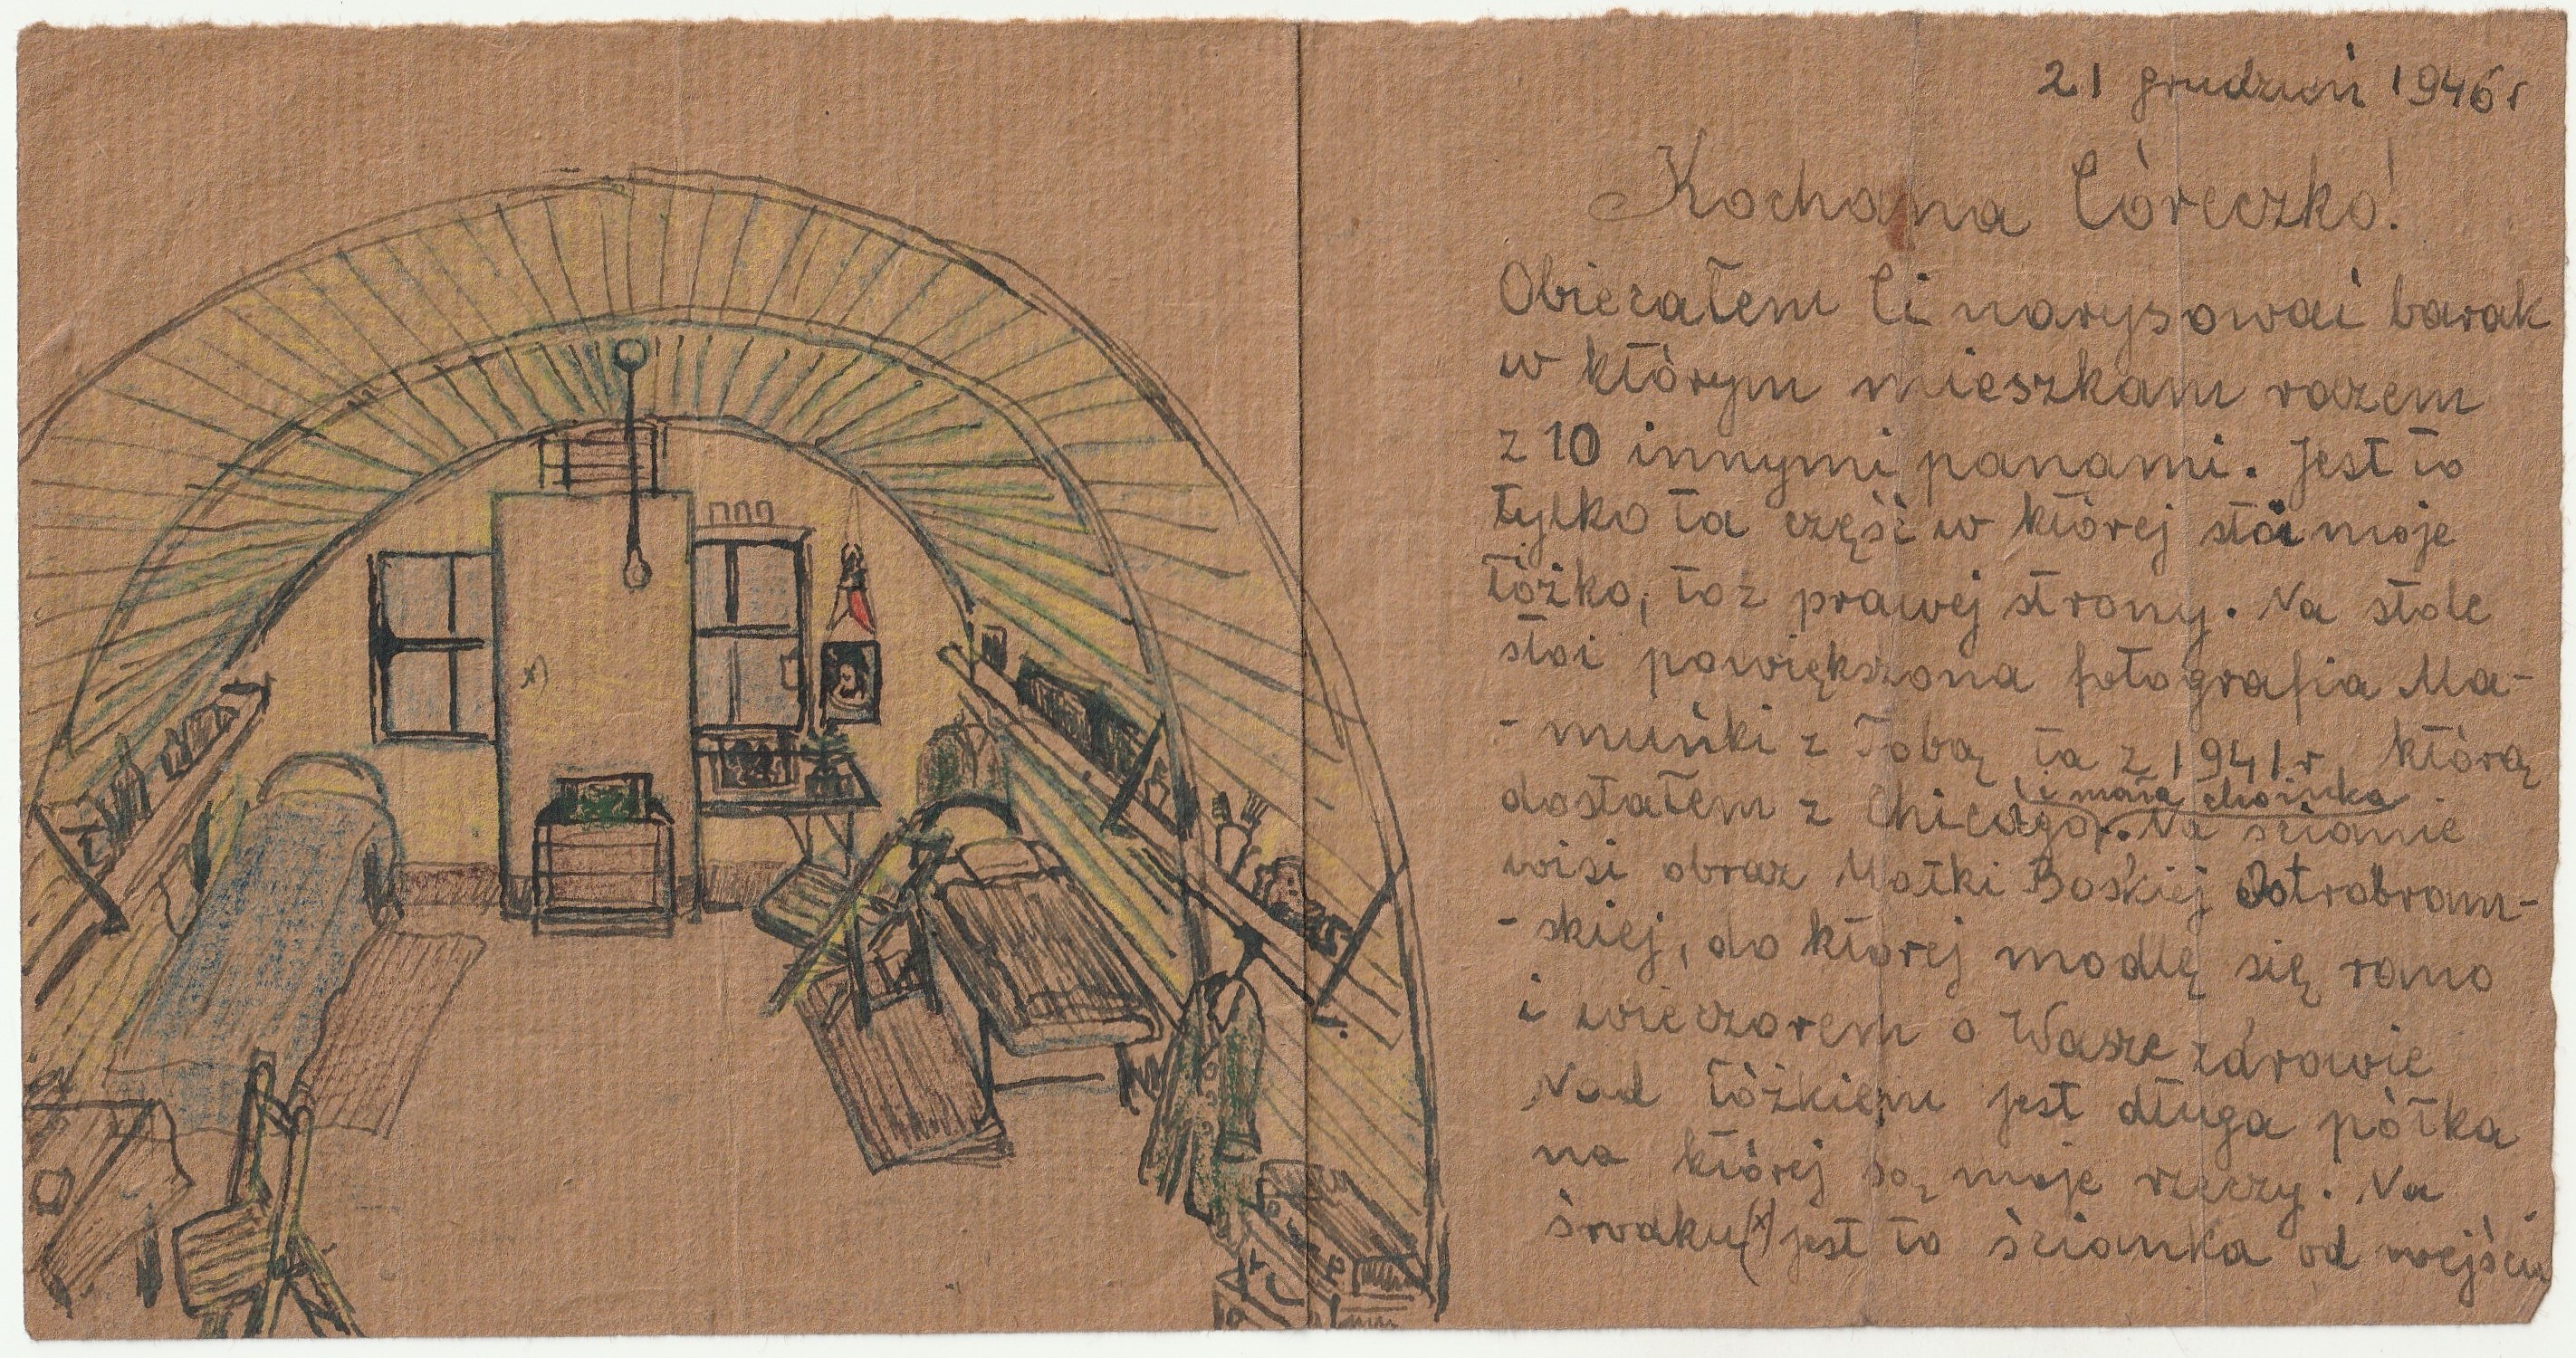 21 grudzień 1946 r
Kochana Córeczko!
Obiecałem Ci narysować barak
w którym mieszkam razem
z 10 innymi panami. Jest to
tylko ta część w której stoi moje
łóżko, to z prawej strony. Na stole
stoi powiększona fotografia Ma-
-muńki z Tobą ta z 1941 r, którą
dostałem z Chicago (i mała choinka). Na ścianie
wisi obraz Matki Boskiej Ostrobram-
-skiej, do której modlę się rano
i wieczorem o Wasze zdrowie
Nad łóżkiem jest długa półka
na której są moje rzeczy. Na
środku (x) jest to ścianka od wejścia
x)